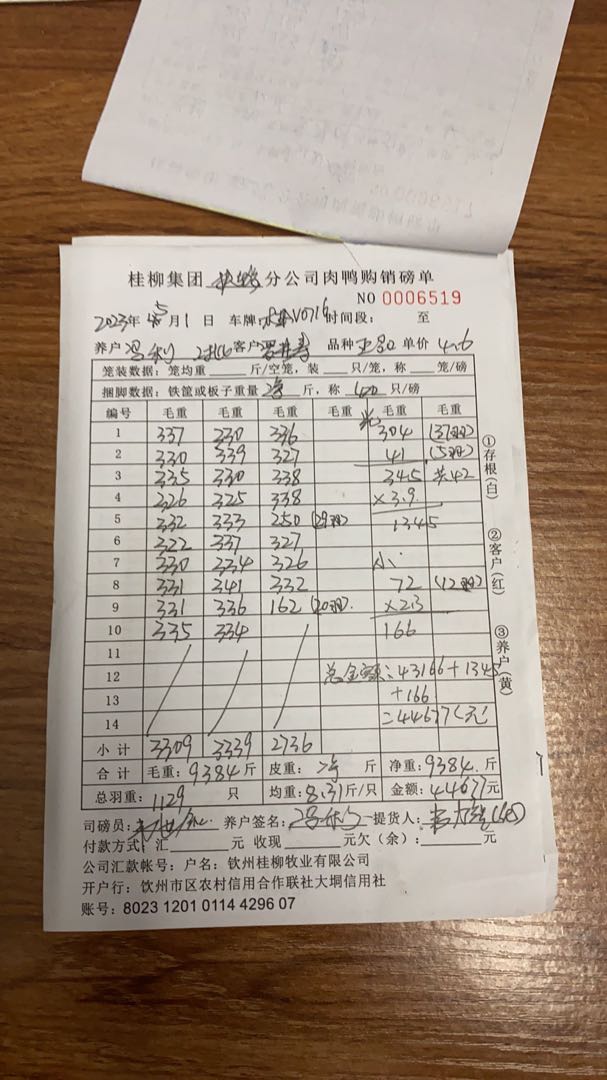 桂柳集团 分公司肉鸭购销磅单
NO 0006519
2023年5月1日 车牌 V0716 时间段： 至
养户 冯利 客户 品种 单价 4.6
笼装数据：笼均重 斤/空笼，装 只/笼，称 笼/磅
捆脚数据：铁筐或板子重量 斤，称 只/磅
编号 毛重 毛重 毛重 毛重 毛重 毛重
1 337 330 336 304 (37羽)
2 330 339 327 41 (5羽)
3 335 330 338 345 共42
4 326 325 338 ×3.9
5 332 333 250 (29羽) 1345
6 322 337 327
7 330 334 326 小：
8 331 341 332 72 (12羽)
9 331 336 162 (20羽) ×2.3
10 335 334 166
11
12 总金额：43166+1345
13 +166
14 =44677(元)
小计 3309 3339 2736
合计 毛重：9384斤 皮重： 斤 净重：9384斤
总羽重：1129 只 均重：8.31斤/只 金额：44677元
司磅员： 养户签名： 提货人：
付款方式：汇 元 收现 元欠（余）： 元
公司汇款帐号：户名：钦州桂柳牧业有限公司
开户行：钦州市区农村信用合作联社大垌信用社
账号：8023 1201 0114 4296 07
①存根(白)
②客户(红)
③养户(黄)